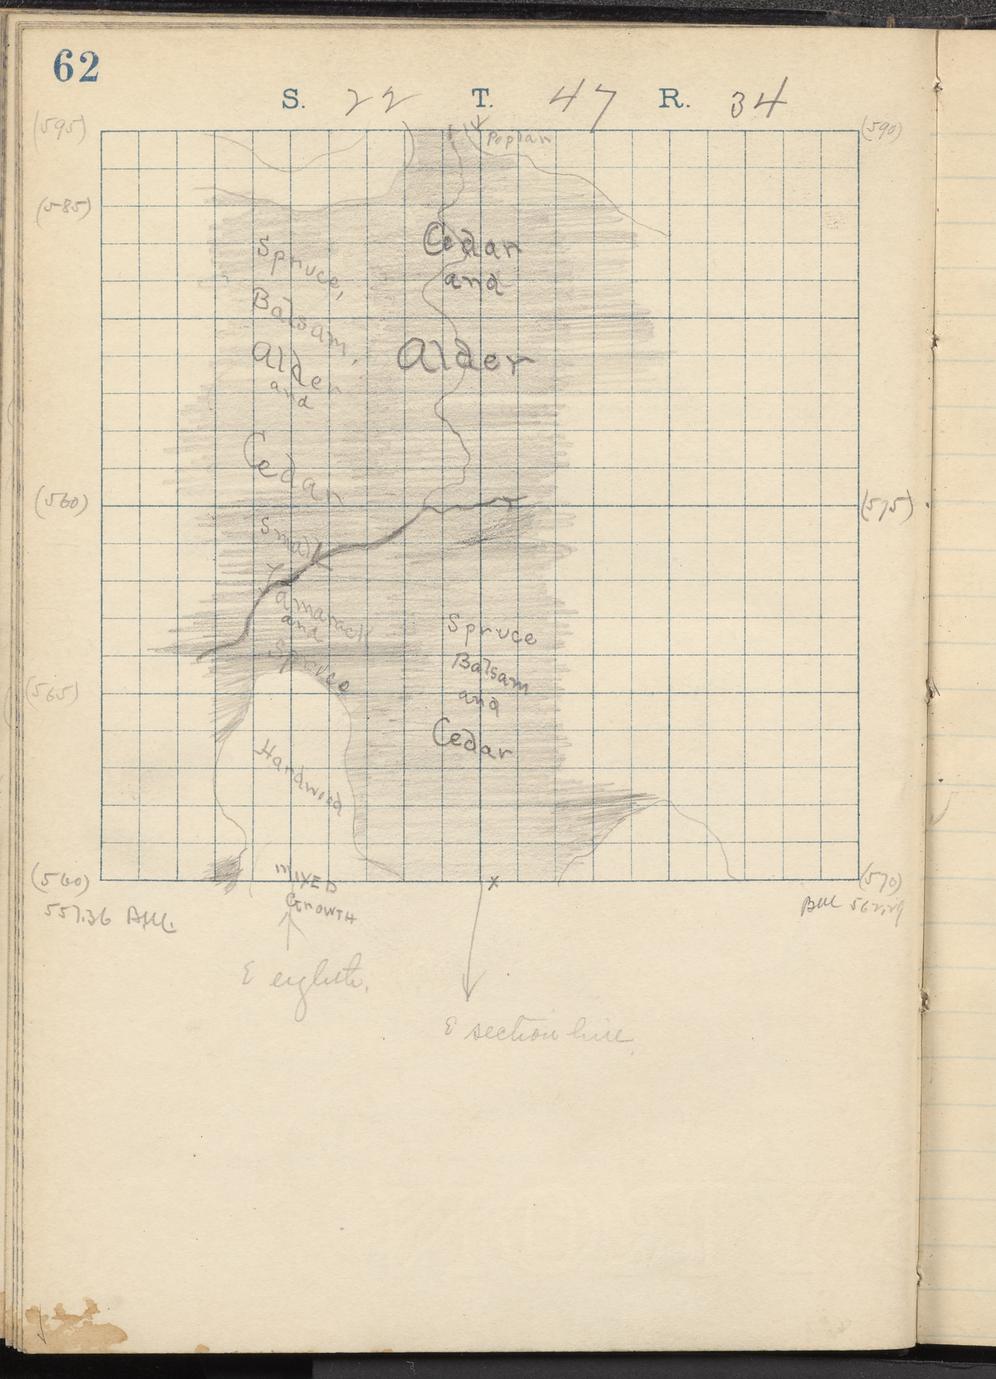 62
S. 22 T. 47 R. 34
(595)
Poplar
(590)
(585)
Cedar
and
Alder
Spruce,
Balsam,
Alder
and
Cedar
(560)
(575)
Small
Tamarack
and
Spruce
Spruce
Balsam
and
Cedar
(565)
Hardwood
(560)
MIXED
GROWTH
x
(570)
557.36 BM.
BM 562.29
E eighth.
E section line.